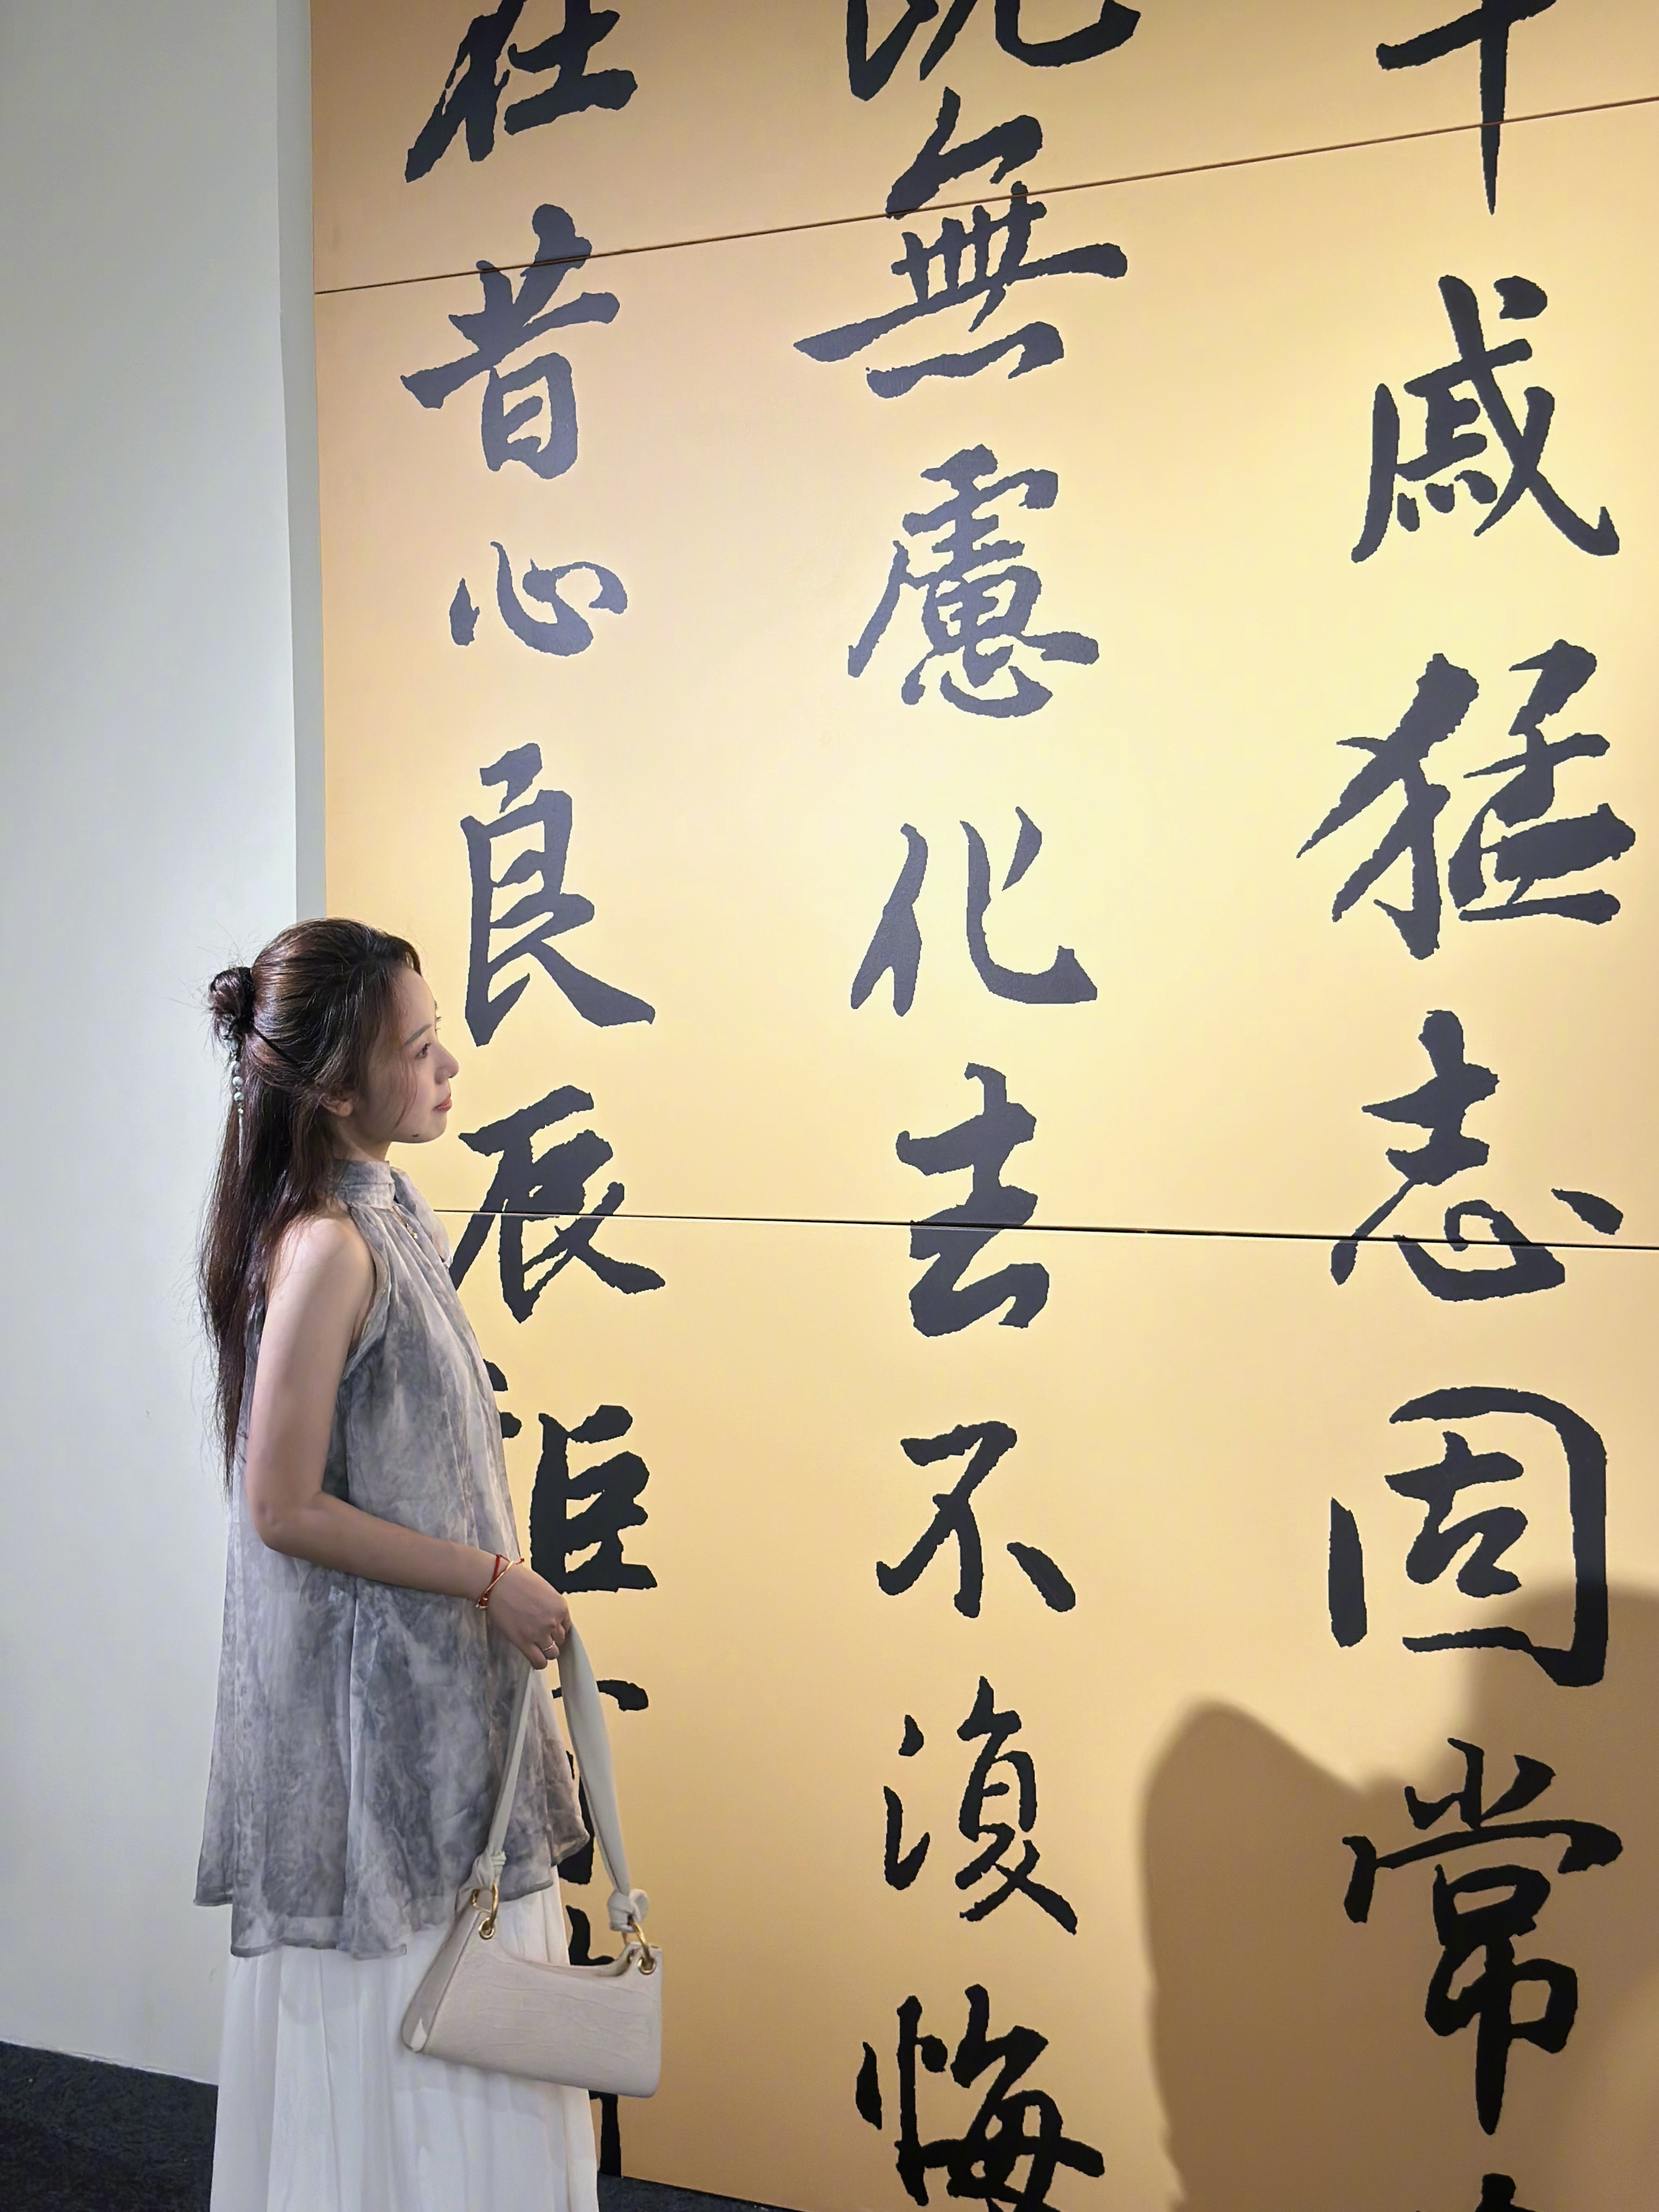 干戚猛志固常
無慮化去不復悔
在昔心良辰詎